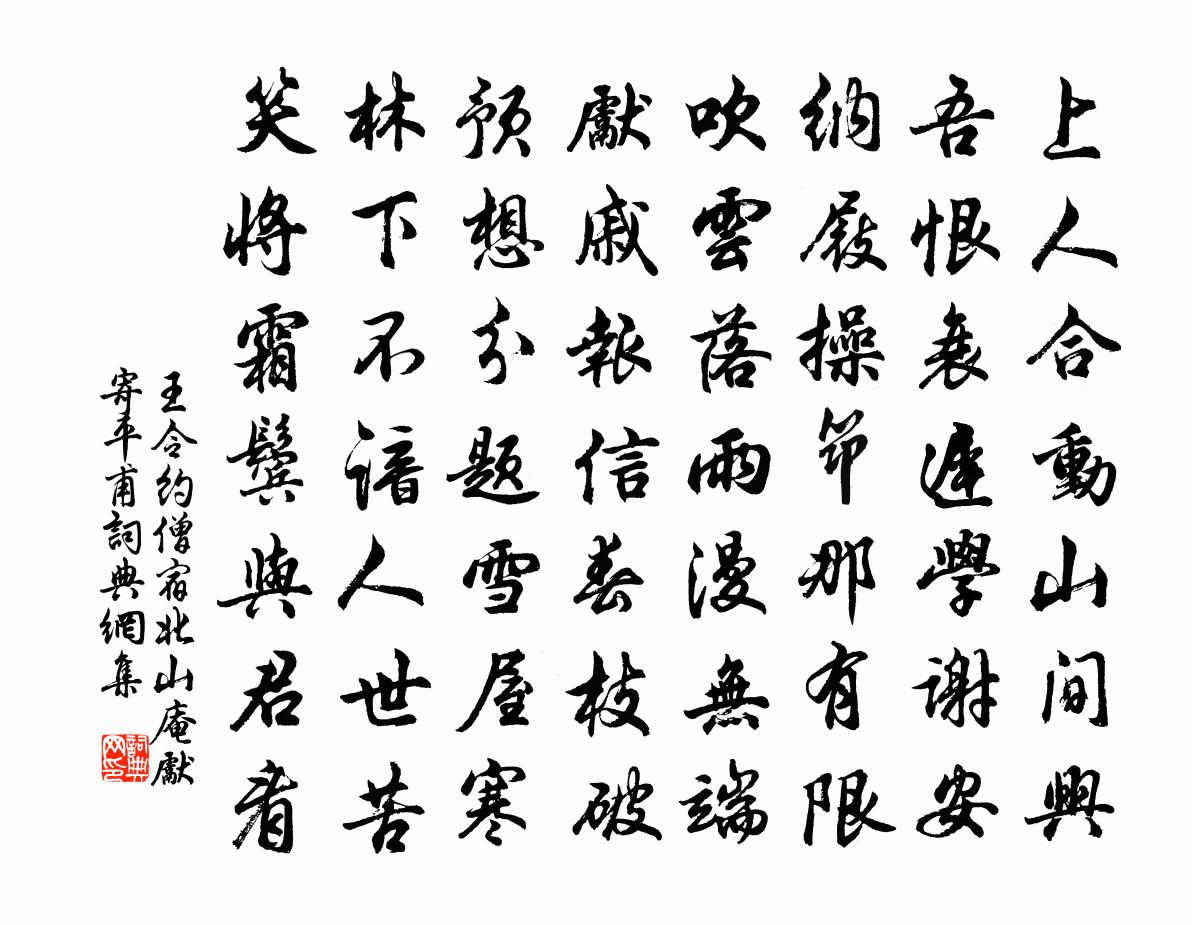 上人合動山間興
吾恨衰遲學謝安
納屐操筇那有限
吹雲落雨漫無端
獻戚報信春枝破
預想分題雪屋寒
林下不諳人世苦
笑將霜鬢與君看
王令約僧宿北山庵獻
寄平甫詞典網集
詞典網印